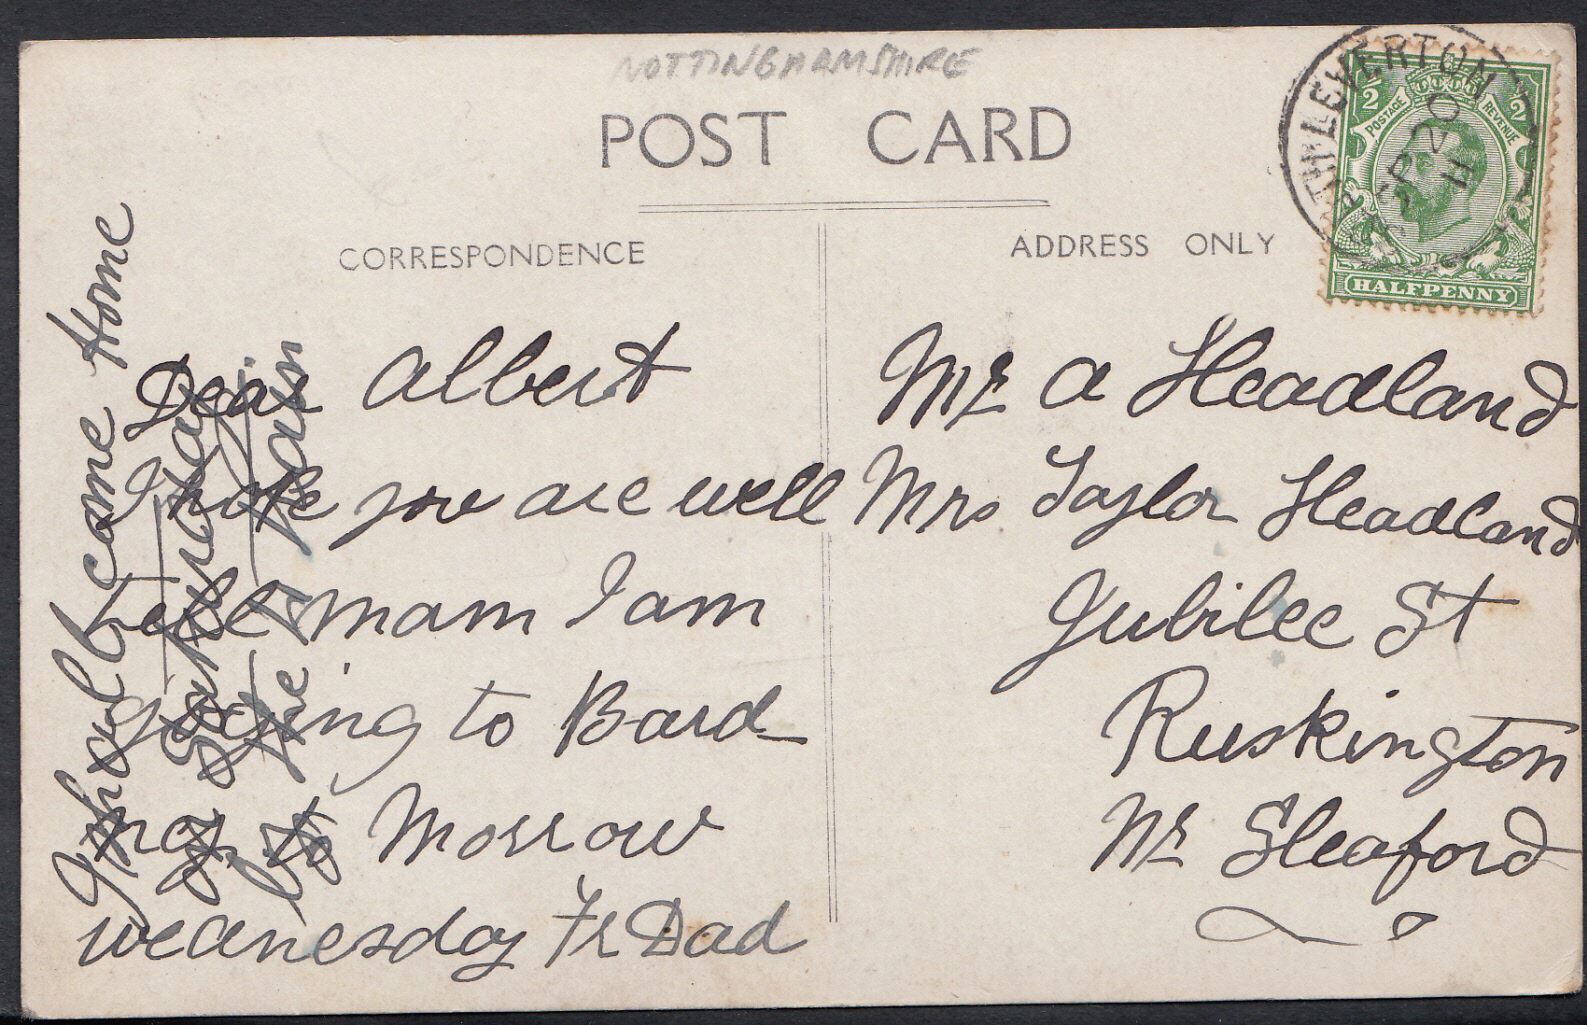 NOTTINGHAMSHIRE
POST CARD
CORRESPONDENCE
ADDRESS ONLY
LEVERTON
SP 20
11
POSTAGE
REVENUE
1/2
1/2
HALFPENNY
Dear Albert
I hope you are well
tell mam I am
going to Bard
ney to Morrow
wednesday Fr Dad
I shall come Home
Saturday
by the
train
Mr A Headland
Mrs Taylor Headland
Jubilee St
Ruskington
Nr Sleaford